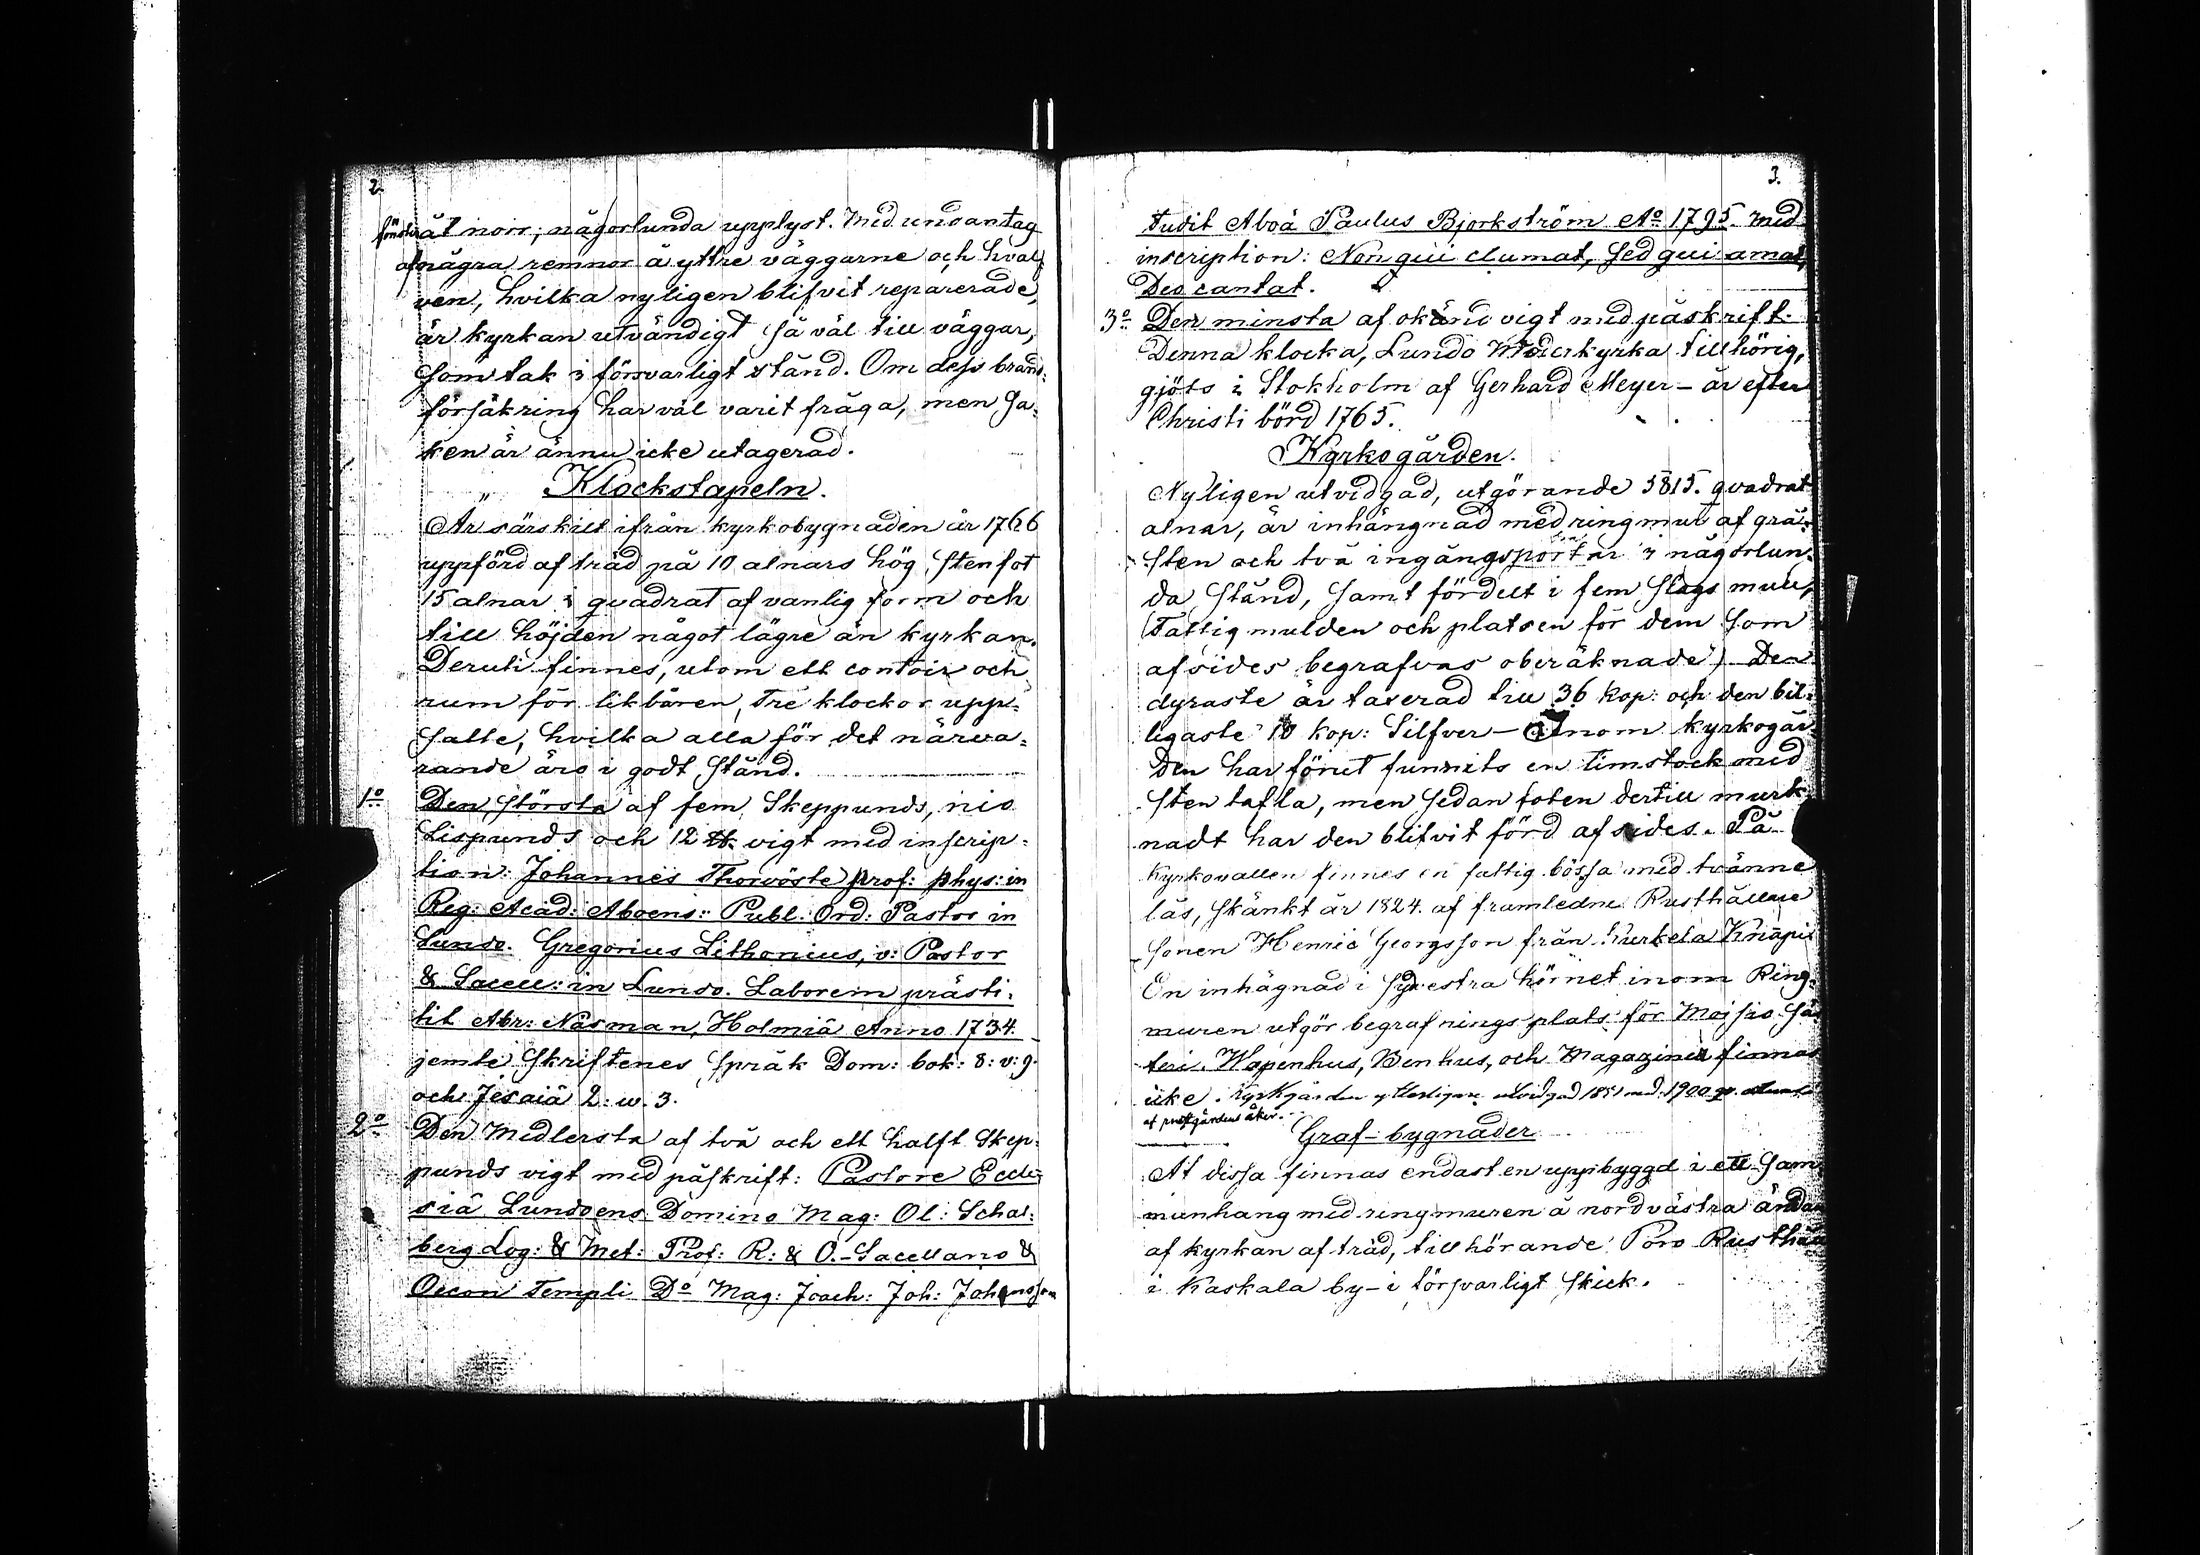 2.
fönster åt norr; någorlunda upplyst. Med undantag
af några remnor å yttre väggarne och hvalf
ven, hvilka nyligen blifvit reparerade,
är kyrkan utvändigt så väl till väggar,
som tak i försvarligt stånd. Om dess brand-
försäkring har väl varit fråga, men sa-
ken är ännu icke utagerad.
Klockstapeln.
Är särskilt ifrån kyrkobygnaden år 1766
uppförd af träd på 10 alnars hög stenfot
15 alnar i qvadrat af vanlig form och
till höjden något lägre än kyrkan.
Deruti finnes, utom ett contoir och
rum för likbåren, tre klockor upp-
satte, hvilka alla för det närva-
rande äro i godt stånd.
1o Den största af fem Skeppunds, nio
Lispunds och 12 ℔ vigt med inscrip-
tion: Johannes Thorvöste prof: phys: in
Reg: Acad: Aboens: Publ: Ord: Pastor in
Lundo. Gregorius Lithonius, v: Pastor
& Sacell: in Lundo. Laborem prästi-
tit Abr: Näsman, Holmiä Anno 1734
jemte Skriftenes språk Dom: bok: 8: v: 9.
och Jesaiä 2: w. 3.
2o Den Medlersta af två och ett halft Skep-
punds vigt med påskrift: Pastore Eccle-
siä Lundoens Domino Mag: Ol: Schal-
berg Log: & Met: Prof: R: & O.- Sacellano &
Oecon Templi Do Mag: Joach: Joh: Johansson
3.
tudit Aboä Paulus Bjorkström Ao 1795. med
inscription: Non qui clumat, sed qui amat,
Deo cantat.
3o Den minsta af okänd vigt med påskrift.
Denna klocka, Lundo Moderkyrka tillhörig,
gjöts i Stokholm af Gerhard Meyer - år efter
Christi börd 1765.
Kyrkogården.
Nyligen utvidgad, utgörande 5815. qvadrat
alnar, är inhängnad med ringmur af grå-
sten och två ingångsportar i någorlun-
da stånd, samt fördelt i fem slags mull,
(Fattigmulden och platsen för dem som
afsides begrafvas oberäknade) Den
dyraste är taxerad till 36 kop: och den bil-
ligaste 10 kop: Silfver - Inom kyrkogår-
den har förut funnits en timstock med
sten tafla, men sedan foten dertill murk-
nadt har den blifvit förd afsides. På
Kyrkovallen finnes en fattig bössa med tvänne
lås, skänkt år 1824. af framledne Rusthållare
sonen Henric Georgsson från Kurkela Knapis
En inhägnad i sydvestra hörnet inom Ring-
muren utgör begrafnings plats för Moisio Sä-
teri. Wapenhus, Benhus, och Magaziner finnas
icke. Kyrkgården ytterligare utvidgad 1851 med 1900 qv. alnar
af prestgårdens åker.
Graf-bygnader
Af dessa finnas endast en uppbyggd i ett sam
manhang med ringmuren å nordvästra ändan
af kyrkan af träd, tillhörande Poro Rusthåll
i Kaskala by - i försvarligt skick.